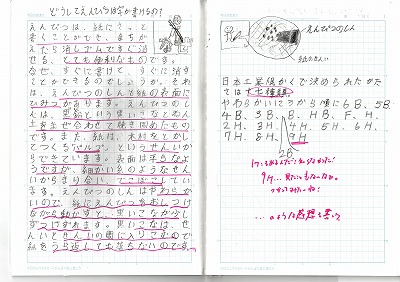 どうしてえんぴつは字が書けるの?
えんぴつは、紙にさっと書くことができ、まちがえたら消しゴムですぐ消せる、とても便利なものです。
なぜ、すぐに書けて、すぐに消すことができるのでしょうか。それは、えんぴつのしんと紙の表面にひみつがあります。えんぴつのしんは、黒鉛という黒いこなとねん土をまぜ合わせて焼き固めたものです。また、紙は、木材などからとってつくるパルプというせんいからできています。表面は平らなようですが、細かい糸のようなせんいがからまり合い、でこぼこしています。えんぴつのしんはやわらかいので、紙にえんぴつをおしつけながら動かすと、黒いこなが少しずつけずれます。黒いこなは、せんいとせんいの間に入りこむので紙をうら返しても落ちないのです。
えんぴつのしん
紙のせんい
日本工業規かくで決められたかたさは十七種類。
やわらかいほうから順に6B、5B、
4B、3B、B、HB、F、H、
2H、3H、4H、5H、6H、
7H、8H、9H
2B、
17こもあるんだ!知らなかった!
9H…見たこともないなあ。
つかってみたいな!
…のような感想も書いて